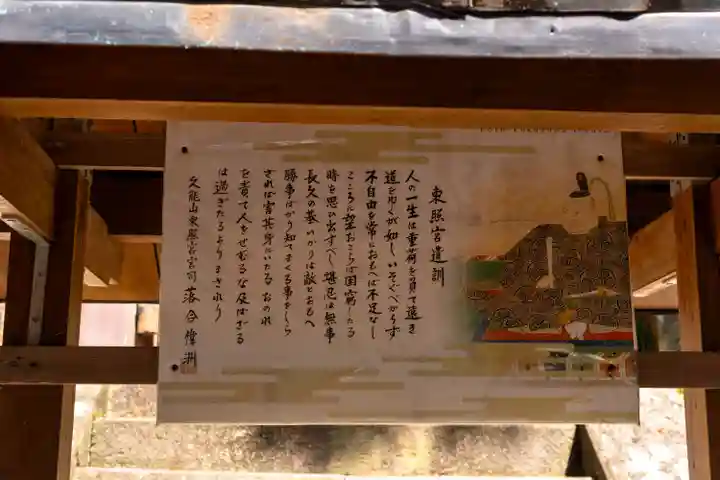 東照宮遺訓
人の一生は重荷を負て遠き
道をゆくが如しいそぐべからず
不自由を常におもへば不足なし
こころに望おこらば困窮したる
時を思ひ出すべし堪忍は無事
長久の基いかりは敵とおもへ
勝事ばかり知てまくる事をしら
ざれば害其身にいたるおのれ
を責て人をせむるな及ばざる
は過ぎたるよりまされり
久能山東照宮宮司 落合偉洲